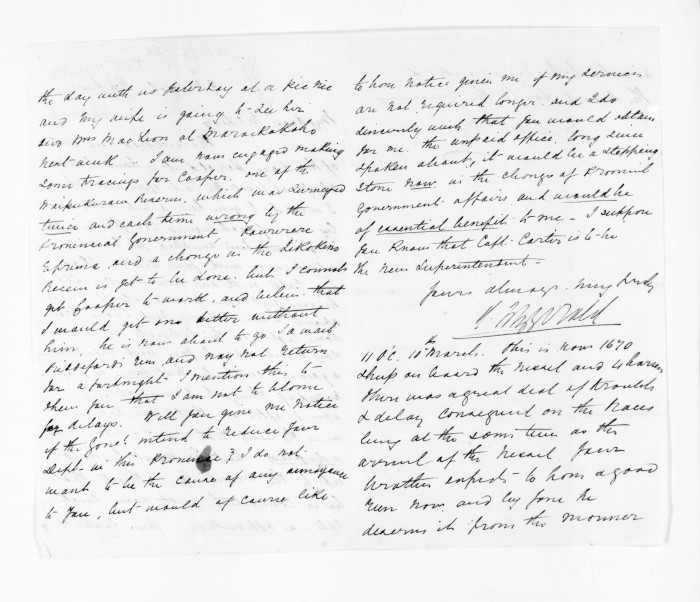 the day with us yesterday at a Pic Nic
and my wife is going to see her
and Mrs MacLean at Maraekakaho
next week. I am now engaged making
some tracings for Cooper, one of the
Waipukurau Reserve, which was surveyed
twice and each time wrong by the
Provincial Government,
and a change in the Tikokino
Reserve is yet to be done. but I cannot
get Cooper to work, and believe that
I would get on better without
him, he is now about to go & mark
run, and may not return
for a fortnight. I mention this to
shew you that I am not to blame
for delays. Will you give me notice
if the Govt. intend to reduce your
Dept. in this Province? I do not
want to be the cause of any annoyance
to you, but would of course like
to have notice given me if my services
are not required longer. and I do
sincerely wish that you would obtain
for me the unpaid office, long since
spoken about, it would be a stepping
stone now in the change of Provincial
Government affairs and would be
of essential benefit to me - I suppose
you know that Capt. Carter is to be
the new Superintendent -
Yours always very truly
FitzGerald
11 O'C. 10th March. This is now 1670
sheep on board the vessel and 4 horses
There was a great deal of trouble
& delay consequent on the Races
being at the same time as the
arrival of the vessel. Your
brother expects to have a good
run now, and by Jove he
deserves it from the manner